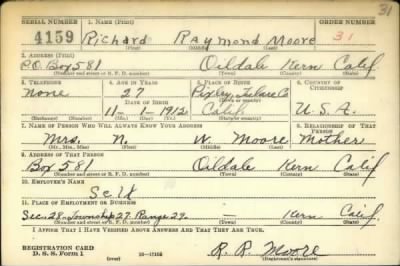 31
SERIAL NUMBER 1. NAME (Print) ORDER NUMBER
4159 Richard Raymond Moore 31
(First) (Middle) (Last)
2. ADDRESS (Print)
P.O. Box 581 Oildale Kern Calif
(Number and street or R. F. D. number) (Town) (County) (State)
3. TELEPHONE 4. AGE IN YEARS 5. PLACE OF BIRTH 6. COUNTRY OF CITIZENSHIP
None 27 Pixley, Tulare Co
DATE OF BIRTH (Town or county)
11-1-1912 Calif. U.S.A.
(Exchange) (Number) (Mo.) (Day) (Yr.) (State or country)
7. NAME OF PERSON WHO WILL ALWAYS KNOW YOUR ADDRESS 8. RELATIONSHIP OF THAT PERSON
Mrs. N. W. Moore Mother
(Mr., Mrs., Miss) (First) (Middle) (Last)
9. ADDRESS OF THAT PERSON
Box 581 Oildale Kern Calif
(Number and street or R. F. D. number) (Town) (County) (State)
10. EMPLOYER'S NAME
Self
11. PLACE OF EMPLOYMENT OR BUSINESS
Sec. 28-Township 27. Range 29. — Kern Calif.
(Number and street or R. F. D. number) (Town) (County) (State)
I AFFIRM THAT I HAVE VERIFIED ABOVE ANSWERS AND THAT THEY ARE TRUE.
REGISTRATION CARD
D. S. S. Form 1 (over) R. R. Moore
(Registrant's signature)